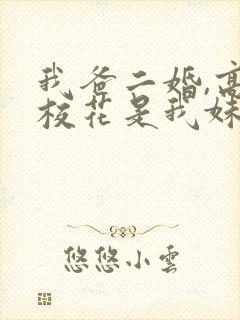 我爸二婚,高
校花是我妹
悠悠小雲